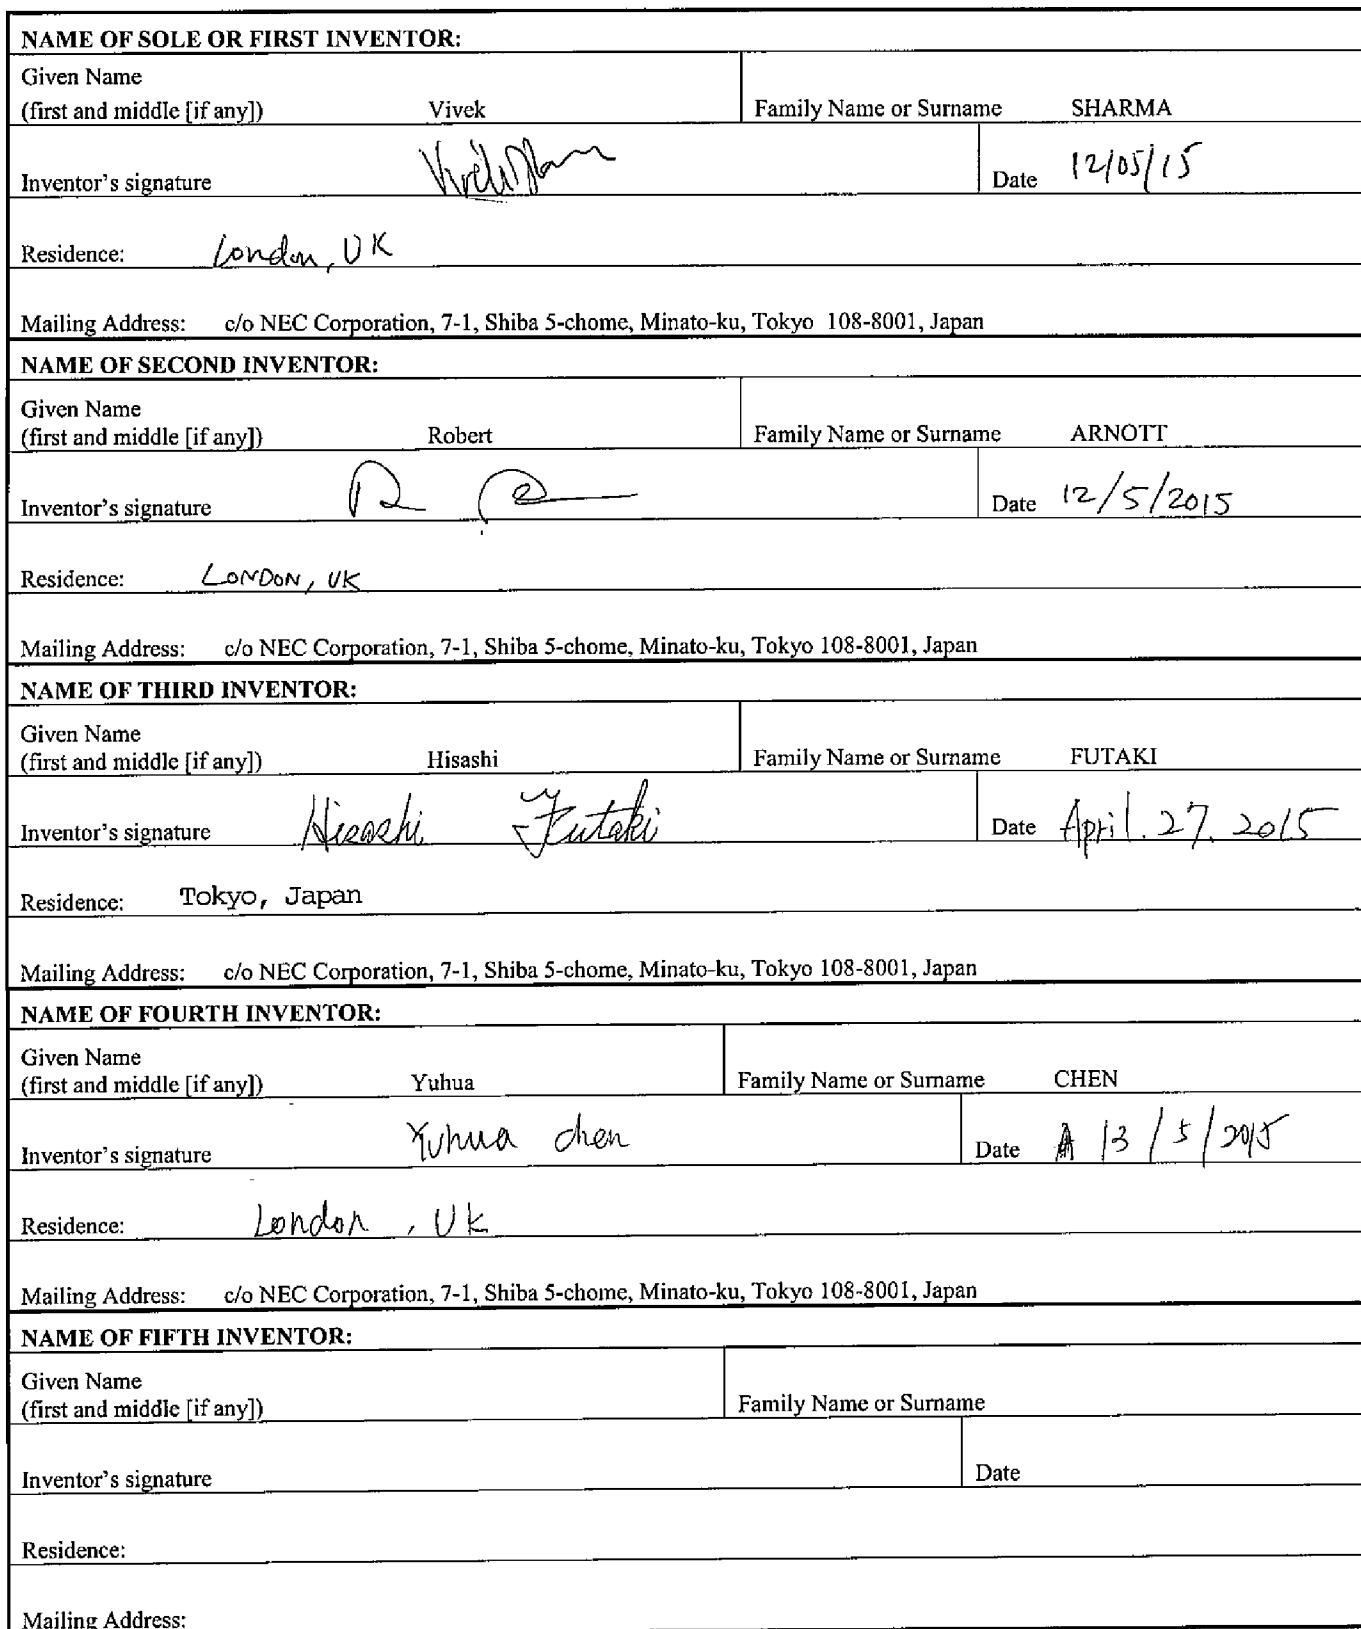 NAME OF SOLE OR FIRST INVENTOR:
Given Name
(first and middle [if any]) Vivek Family Name or Surname SHARMA
Inventor's signature Date 12/05/15
Residence: London, UK
Mailing Address: c/o NEC Corporation, 7-1, Shiba 5-chome, Minato-ku, Tokyo 108-8001, Japan
NAME OF SECOND INVENTOR:
Given Name
(first and middle [if any]) Robert Family Name or Surname ARNOTT
Inventor's signature Date 12/5/2015
Residence: LONDON, UK
Mailing Address: c/o NEC Corporation, 7-1, Shiba 5-chome, Minato-ku, Tokyo 108-8001, Japan
NAME OF THIRD INVENTOR:
Given Name
(first and middle [if any]) Hisashi Family Name or Surname FUTAKI
Inventor's signature Hisashi Futaki Date April. 27. 2015
Residence: Tokyo, Japan
Mailing Address: c/o NEC Corporation, 7-1, Shiba 5-chome, Minato-ku, Tokyo 108-8001, Japan
NAME OF FOURTH INVENTOR:
Given Name
(first and middle [if any]) Yuhua Family Name or Surname CHEN
Inventor's signature Yuhua chen Date 13/5/2015
Residence: London, UK
Mailing Address: c/o NEC Corporation, 7-1, Shiba 5-chome, Minato-ku, Tokyo 108-8001, Japan
NAME OF FIFTH INVENTOR:
Given Name
(first and middle [if any]) Family Name or Surname
Inventor's signature Date
Residence:
Mailing Address: